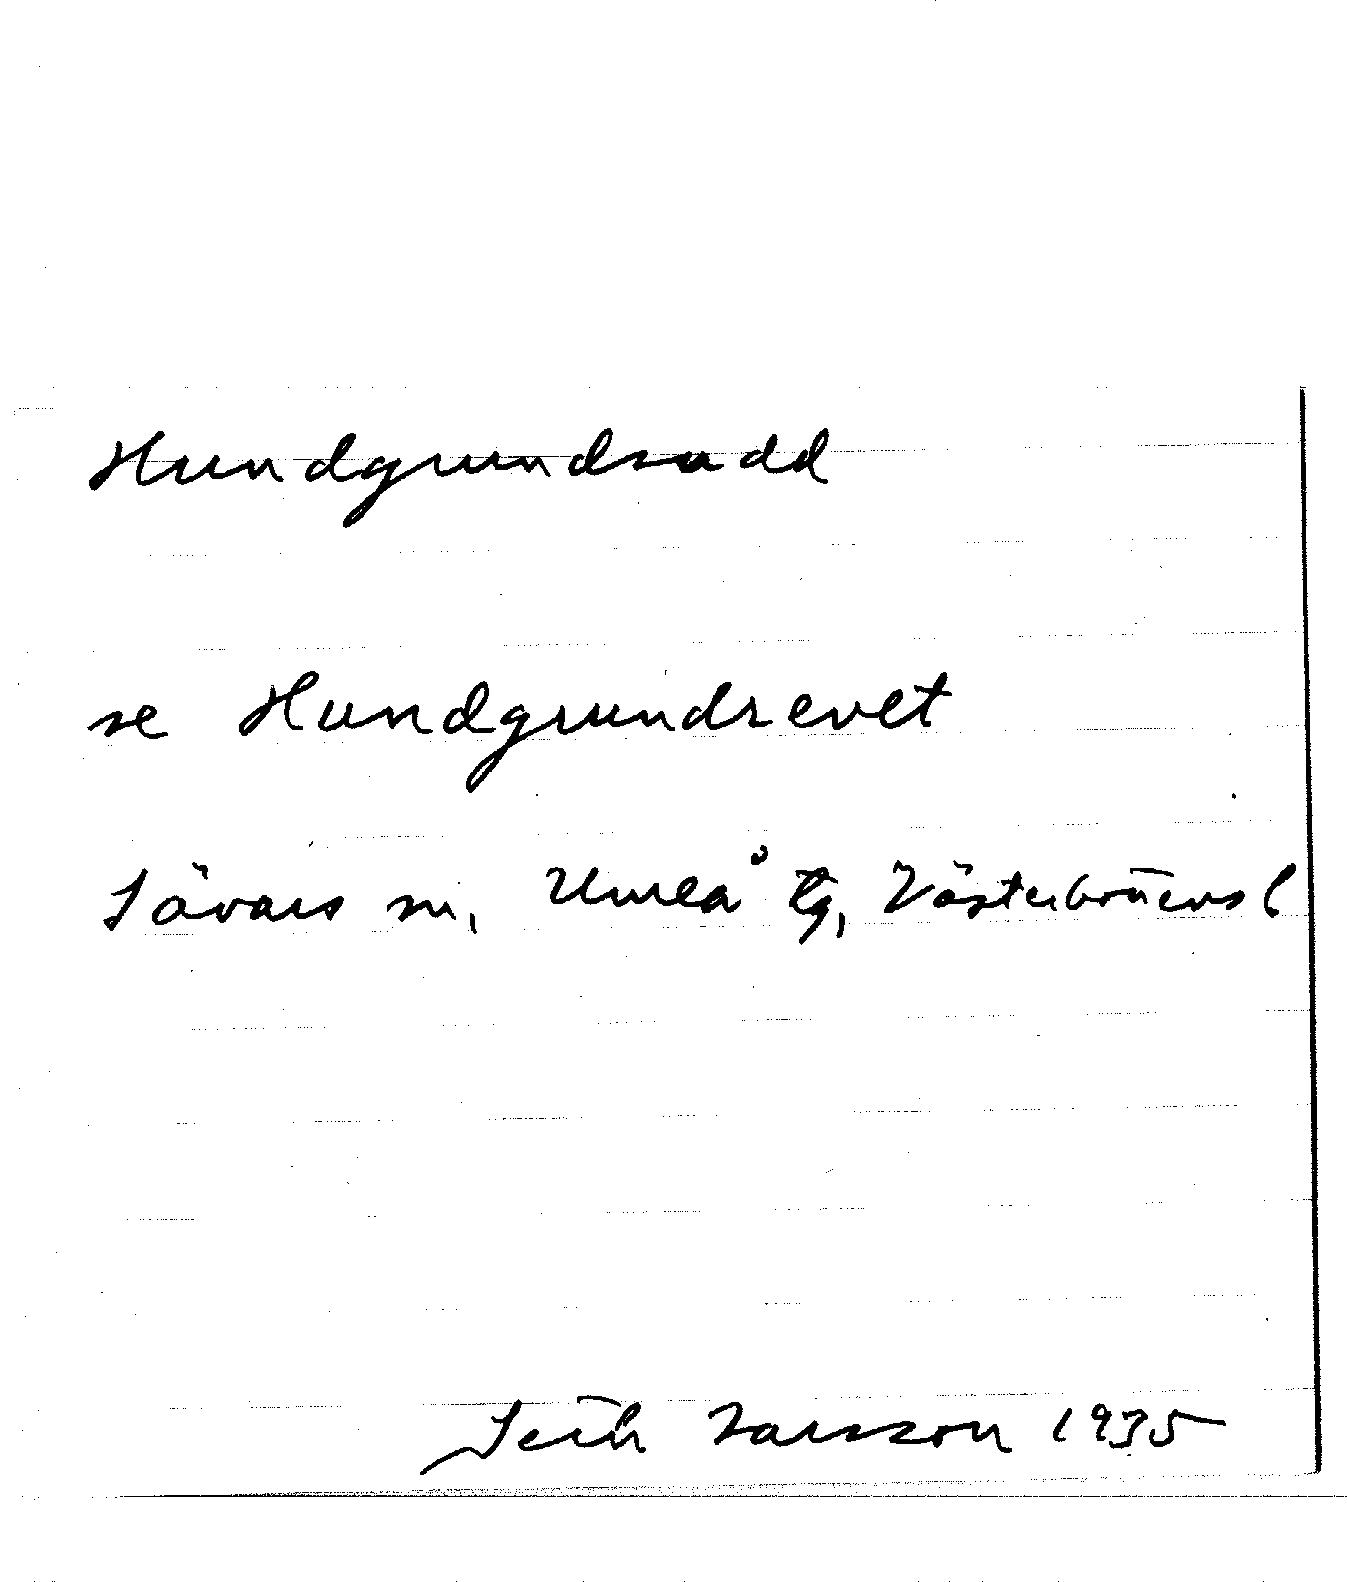 Hundgrundsudd
se Hundgrundsrevet
Sävars sn, Umeå tg, Västerbottens l
Seth Larsson 1935